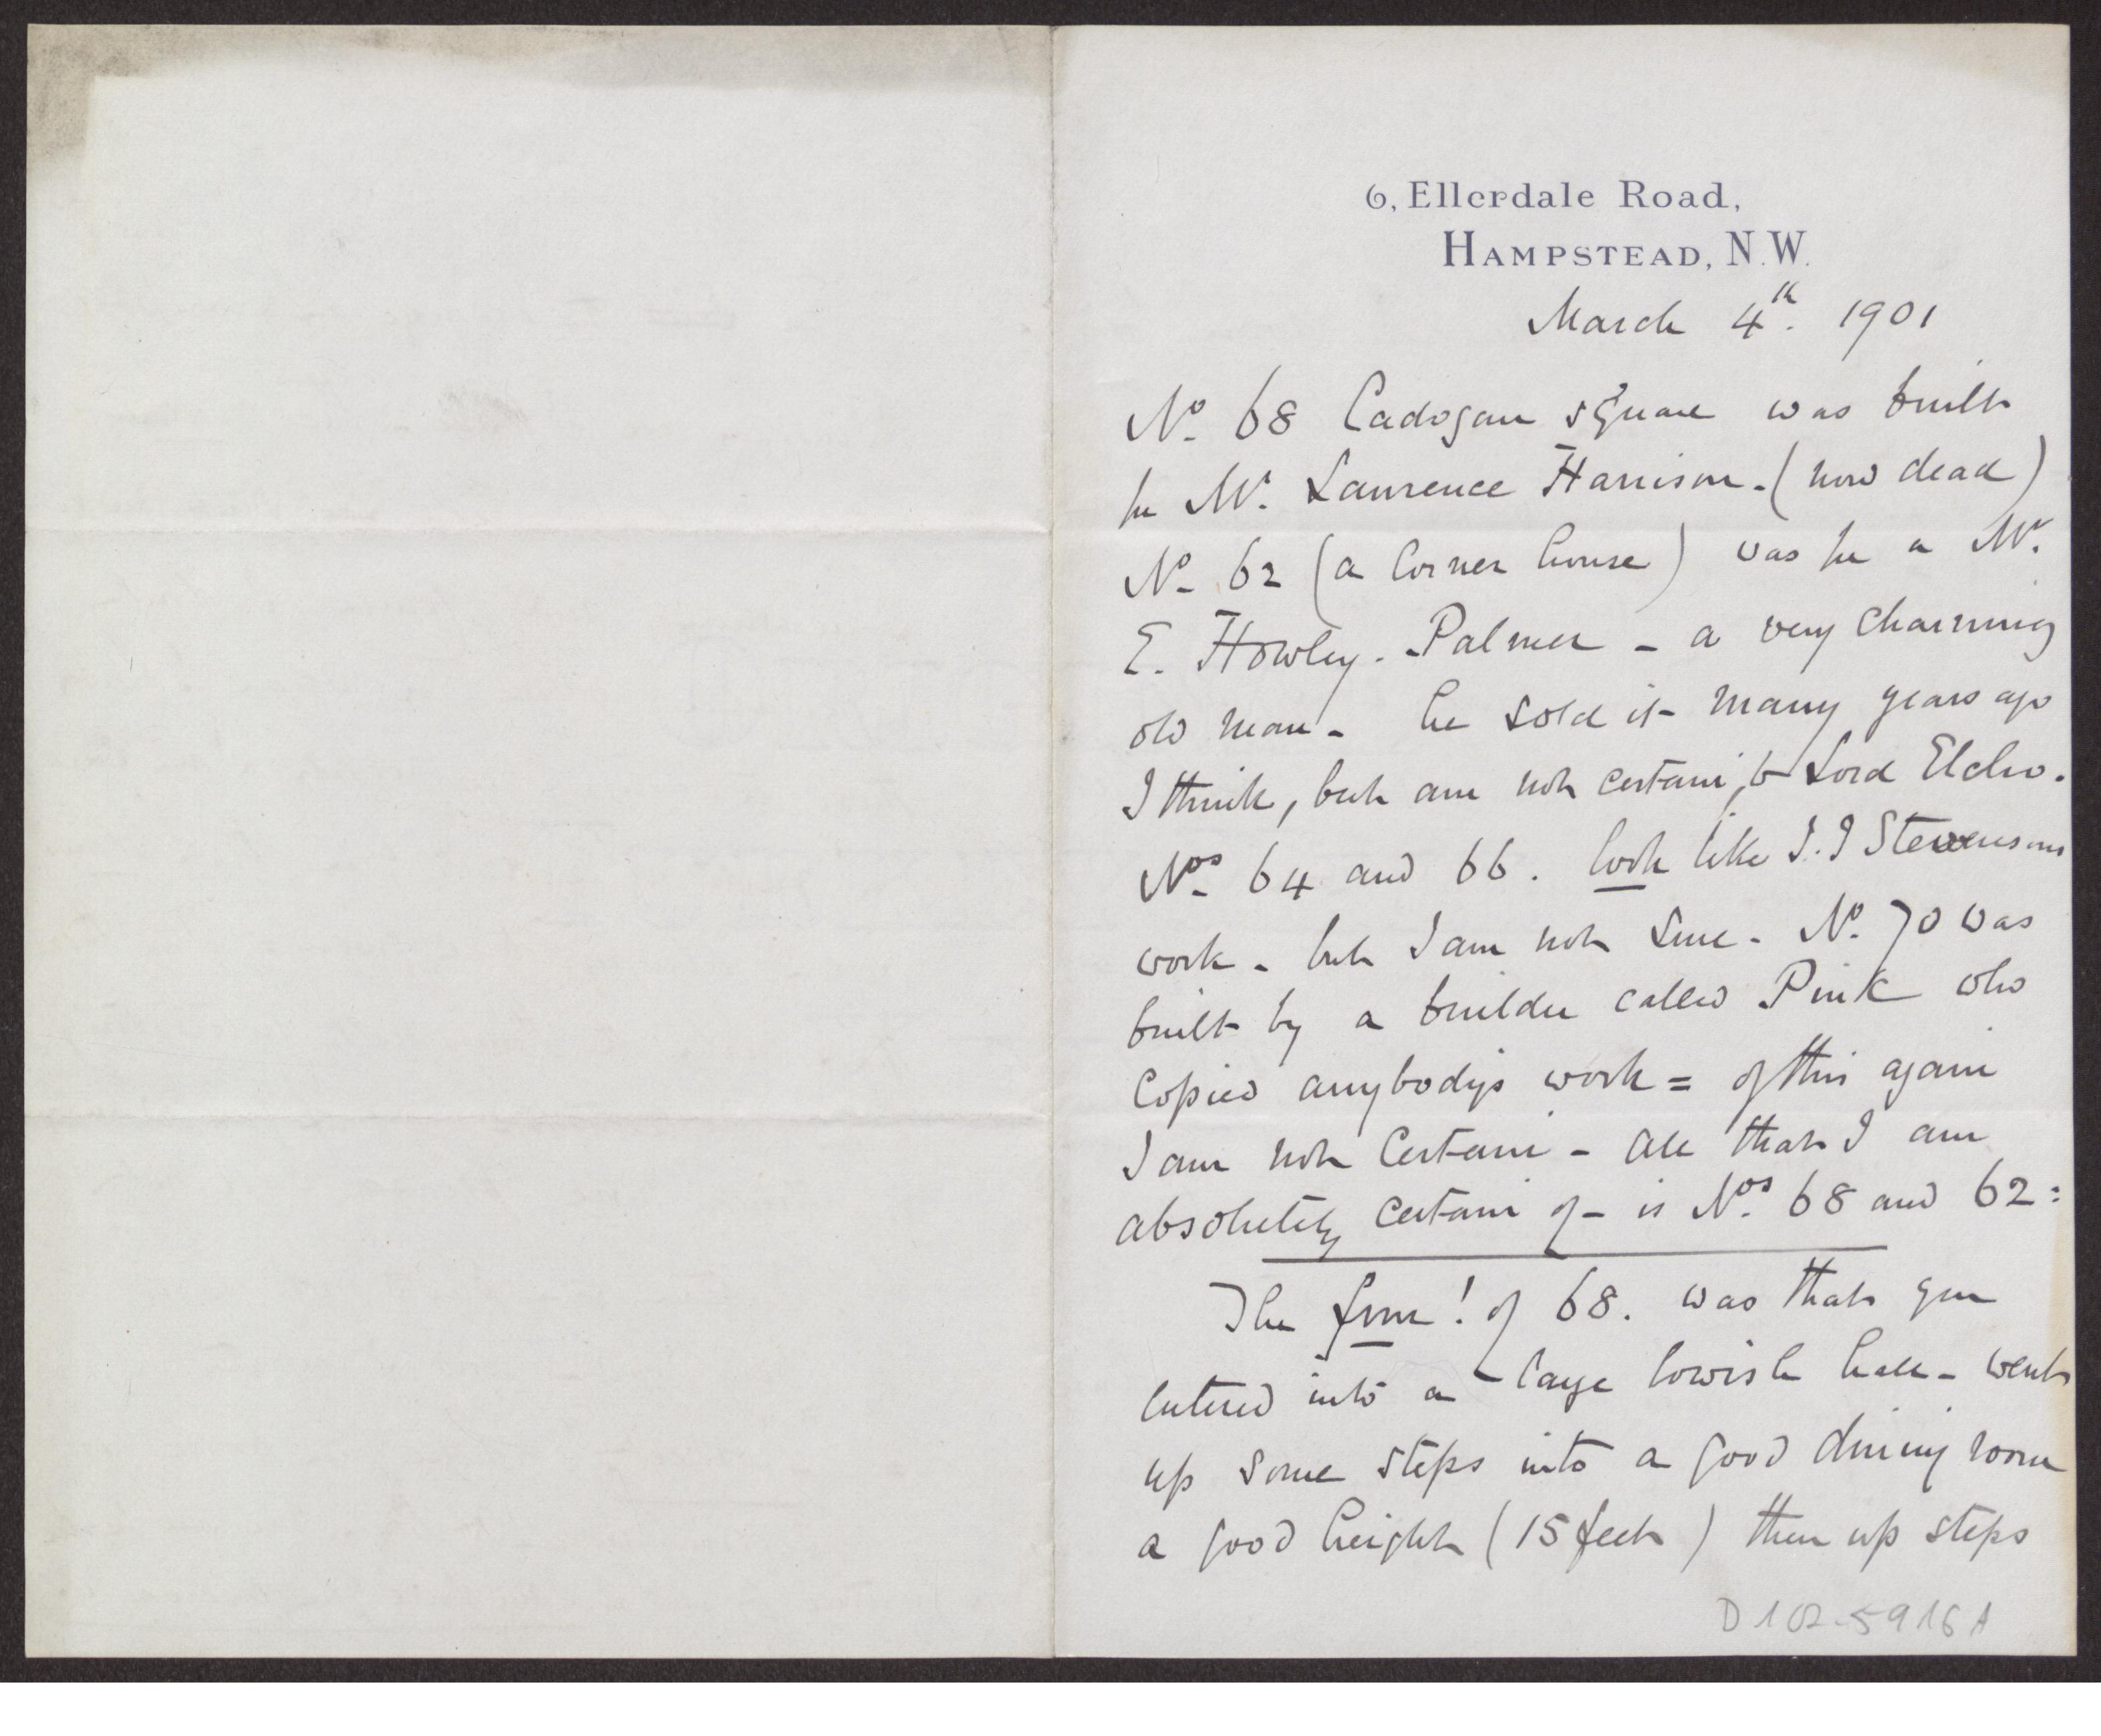 6, Ellerdale Road,
HAMPSTEAD, N.W.
March 4th. 1901
No. 68 Cadogan square was built
for Mr. Laurence Harrison - (now dead)
No. 62 (a corner house) was for a Mr.
E. Howley - Palmer - a very charming
old man - he sold it many years ago
I think, but am not certain, to Lord Elcho.
Nos. 64 and 66. look like J.J Stevensons
work - but I am not sure - No. 70 was
built by a builder called Pink who
copied anybodys work = of this again
I am not certain - all that I am
absolutely certain of - is Nos. 68 and 62 :
The form! of 68. was that you
entered into a large lowish hall - went
up some steps into a good dining room
a good height (15 feet) then up steps
D 102-5916 A